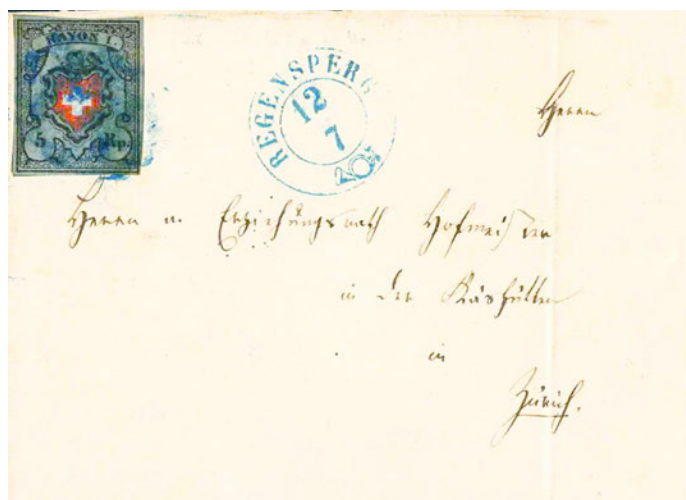 RAYON I.
5 Rp.
REGENSPERG
12
7
Herrn
Herrn a. Erziehungsrath Hofmeister
in der Käshütten
in
Zürich.